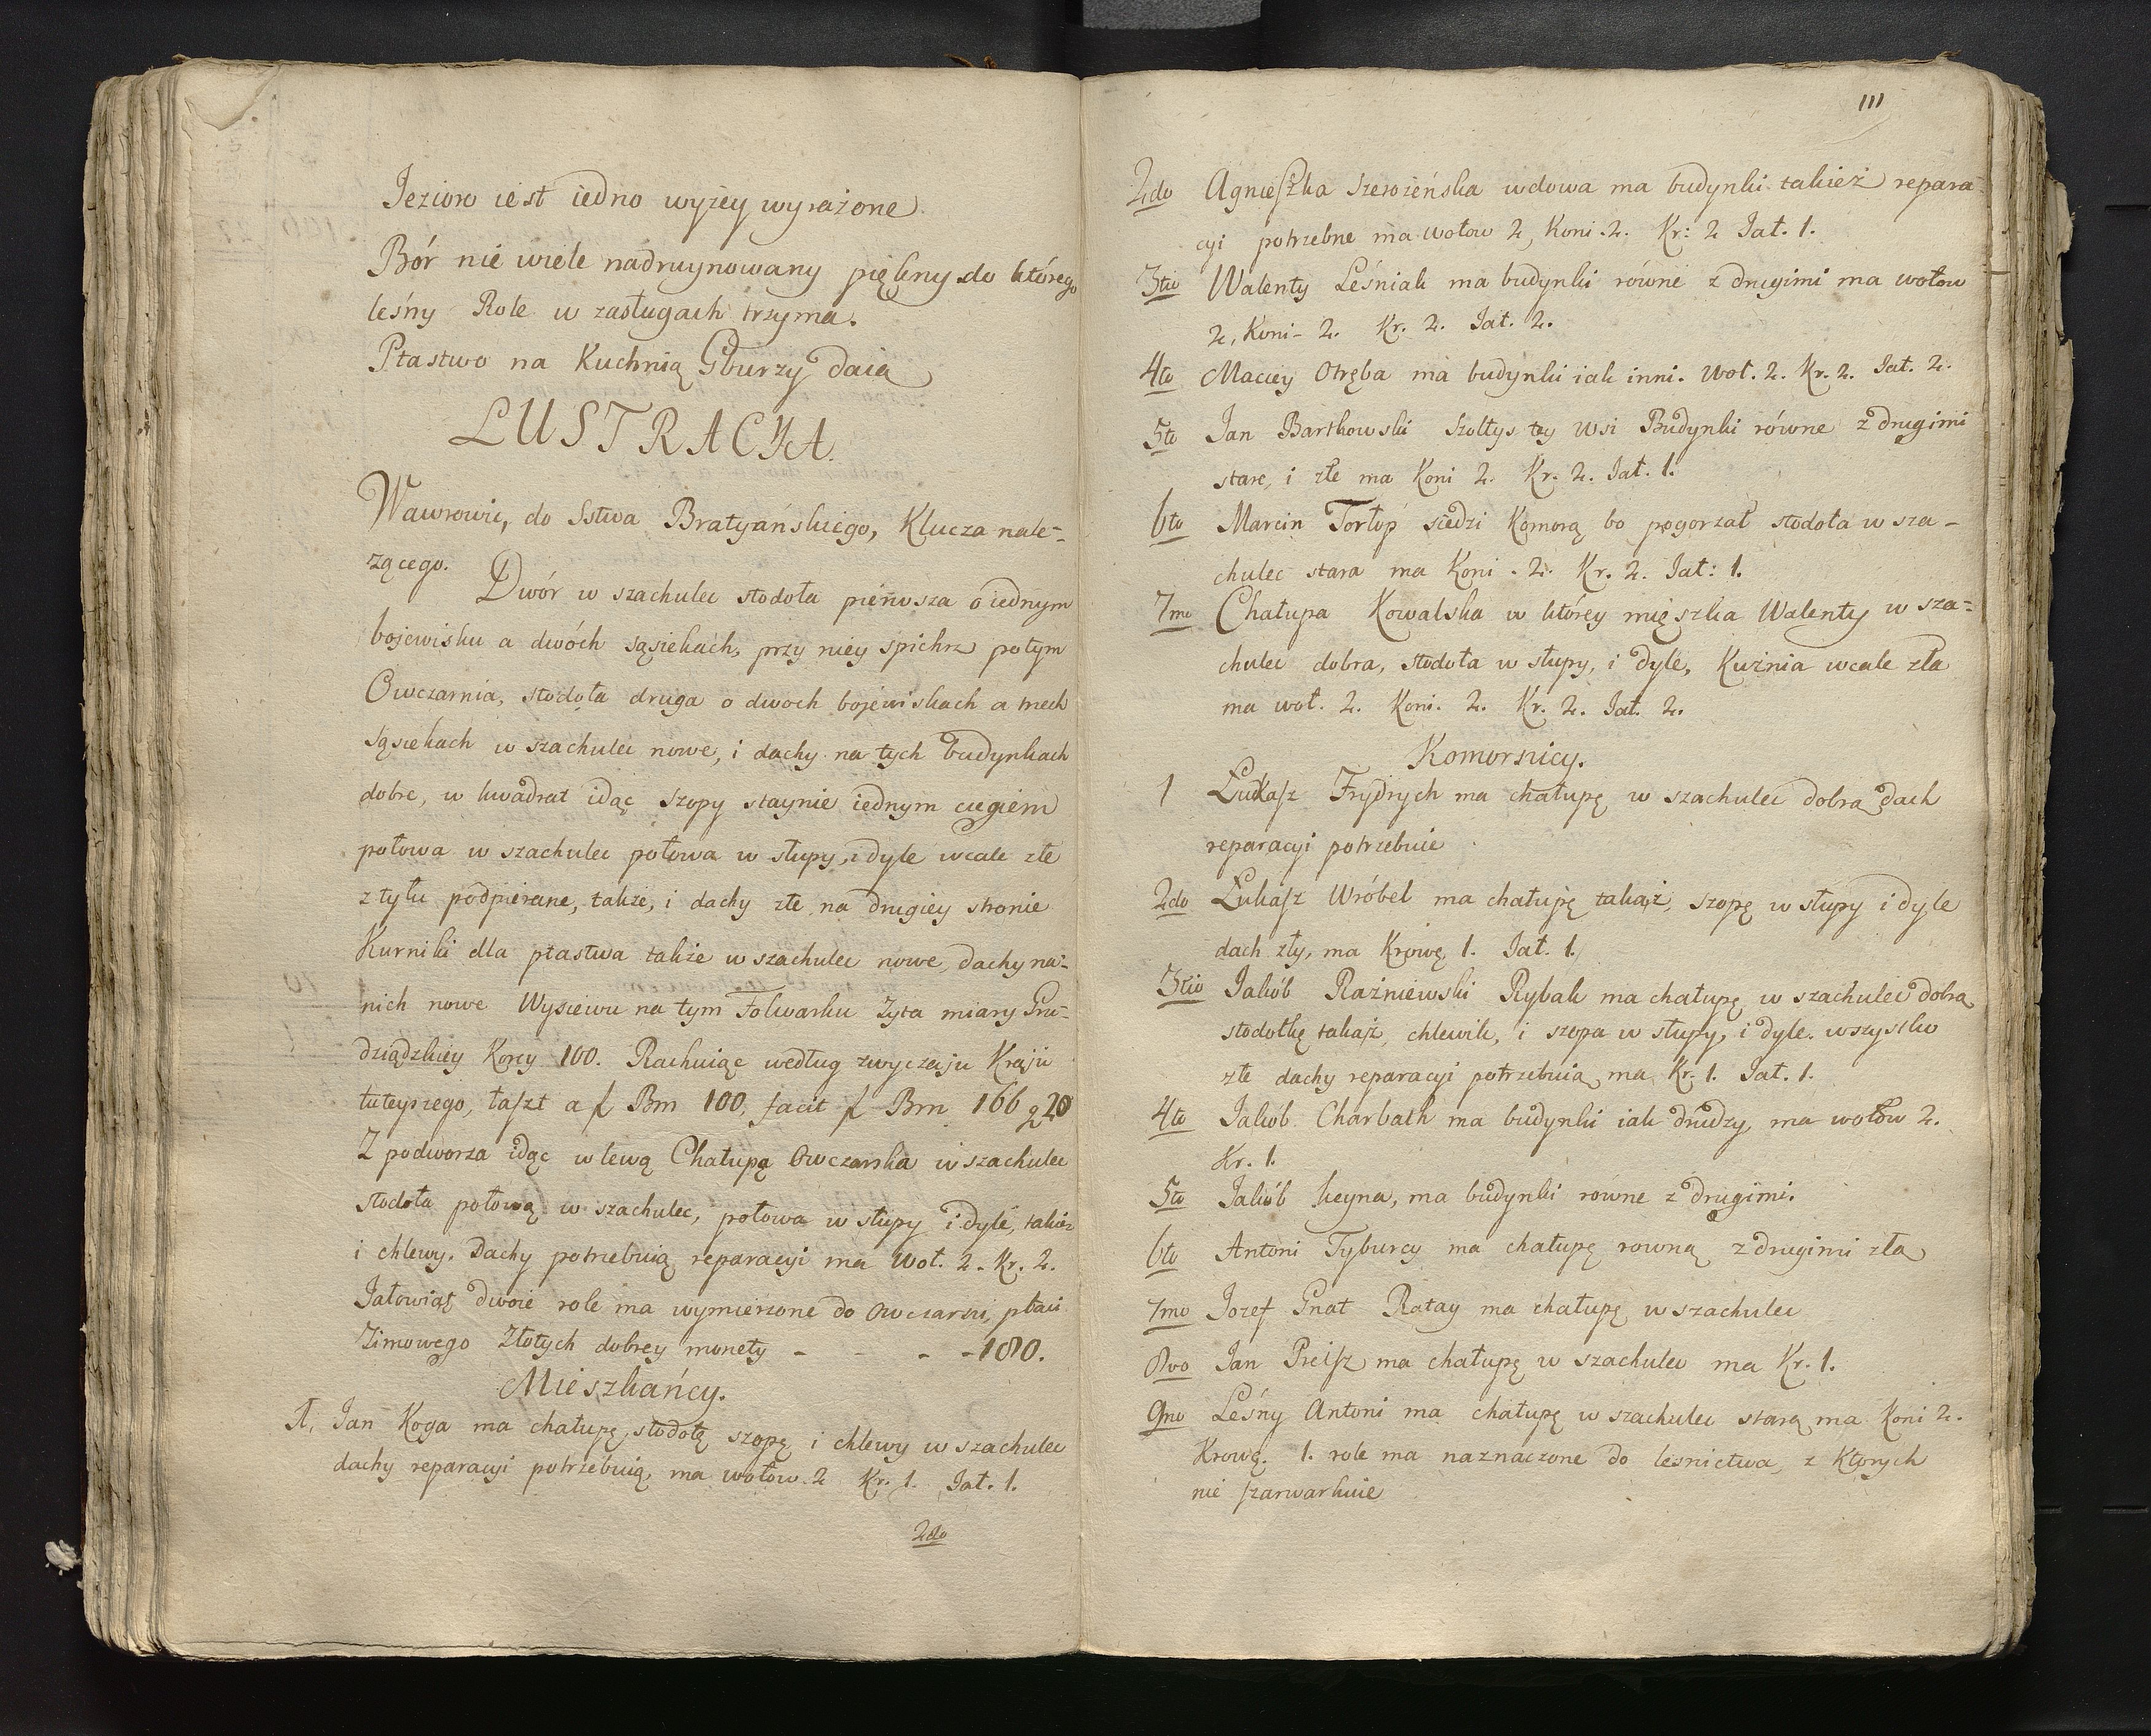 Jezioro iest iedno wyżey wyrażone.
Bór nie wiele nadruynowany piękny do którego
leśny Role w zasługach trzyma.
Ptastwo na Kuchnią Gburzy daią
LUSTRACYA.
Wawrowic, do Sstwa Bratyańskiego, Klucza nale-
żącego.
Dwór w szachulec stodoła pierwsza o iednym
bojewisku a dwóch sąsiekach, przy niey spichrz potym
Owczarnia, stodoła druga o dwoch bojewiskach a trzech
sąsiekach w szachulec nowe, i dachy na tych budynkach
dobre, w kwadrat idąc szopy staynie iednym ciągiem
połowa w szachulec połowa w słupy, i dyle wcale złe
z tyłu podpierane, także, i dachy złe, na drugiey stronie
Kurniki dla ptastwa także w szachulec nowe, dachy na-
nich nowe Wysiewu na tym Folwarku Zyta miary Gru-
dziądzkiey Korcy 100. Rachuiąc według zwyczaju Kraju
tuteyszego, łaszt a f Bm 100, facit f Bm 166 g 20
Z podworza idąc w lewą Chałupą Owczarska w szachulec
stodoła połową w szachulec, połowa w słupy i dyle, takież
i chlewy. Dachy potrzebuią reparacyi ma Woł. 2. Kr. 2.
Jałowiąt dwoie role ma wymierzone do owczarni, płaci
Zimowego Złotych dobrey monety - - - - 180.
Mieszkańcy.
1. Jan Koga ma chałupę, stodołę szopę i chlewy w szachulec
dachy reparacyi potrzebuią, ma wołow 2 Kr. 1. Jał. 1.
2do
111
2do Agnieszka Szewzeńska wdowa ma budynki takież repara
cyi potrzebne ma wołow 2, Koni. 2. Kr: 2 Jał. 1.
3tio Walenty Leśniak ma budynki równe z drugimi ma wołow
2, Koni - 2. Kr. 2. Jał. 2.
4to Maciey Otręba ma budynki iak inni. Woł. 2. Kr. 2. Jał. 2.
5to Jan Bartkowski Szołtys tey Wsi Budynki równe z drugimi
stare, i złe ma Koni 2. Kr. 2. Jał. 1.
6to Marcin Torłop siedzi Komorą bo pogorzał stodoła w sza-
chulec stara ma Koni. 2. Kr. 2. Jał: 1.
7mo Chałupa Kowalska w którey mięszka Walenty w sza-
chulec dobra, stodoła w słupy, i dyle, Kuźnia wcale zła
ma woł. 2. Koni. 2. Kr. 2. Jał. 2.
Komornicy.
1 Łukasz Frydrych ma chałupę w szachulec dobra dach
reparacyi potrzebuie
2do Łukasz Wróbel ma chałupę takąż, szopę w słupy i dyle
dach zły, ma Krowę 1. Jał. 1.
3tio Jakób Raźniewski Rybak ma chałupę w szachulec dobra
stodołkę takąż, chlewik, i szopa w słupy, i dyle. wszystko
złe dachy reparacyi potrzebuią, ma Kr. 1. Jał. 1.
4to Jakob Charbath ma budynki iak drudzy, ma wołow 2.
Kr. 1.
5to Jakób heyna, ma budynki rowne z drugimi.
6to Antoni Tyburcy ma chałupę rowną z drugimi zła
7mo Jozef Gnat Rataj ma chałupę w szachulec
8vo Jan Preisz ma chałupę w szachulec ma Kr. 1.
9no Leśny Antoni ma chałupę w szachulec starą ma Koni 2.
Krowę. 1. role ma naznaczone do lesnictwa, z Ktorych
nie szarwarkuie